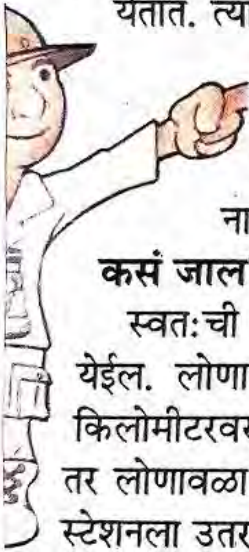 येतात. त्य
ना
कसं जाल
स्वतःची
येईल. लोणा
किलोमीटरवर
तर लोणावळा
स्टेशनला उतर